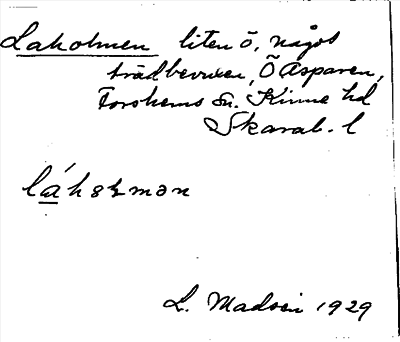 Laholmen liten ö, något
trädbevuxen, Ö Asparen,
Forshems sn. Kinne hd
Skarab. l
L. Madsén 1929